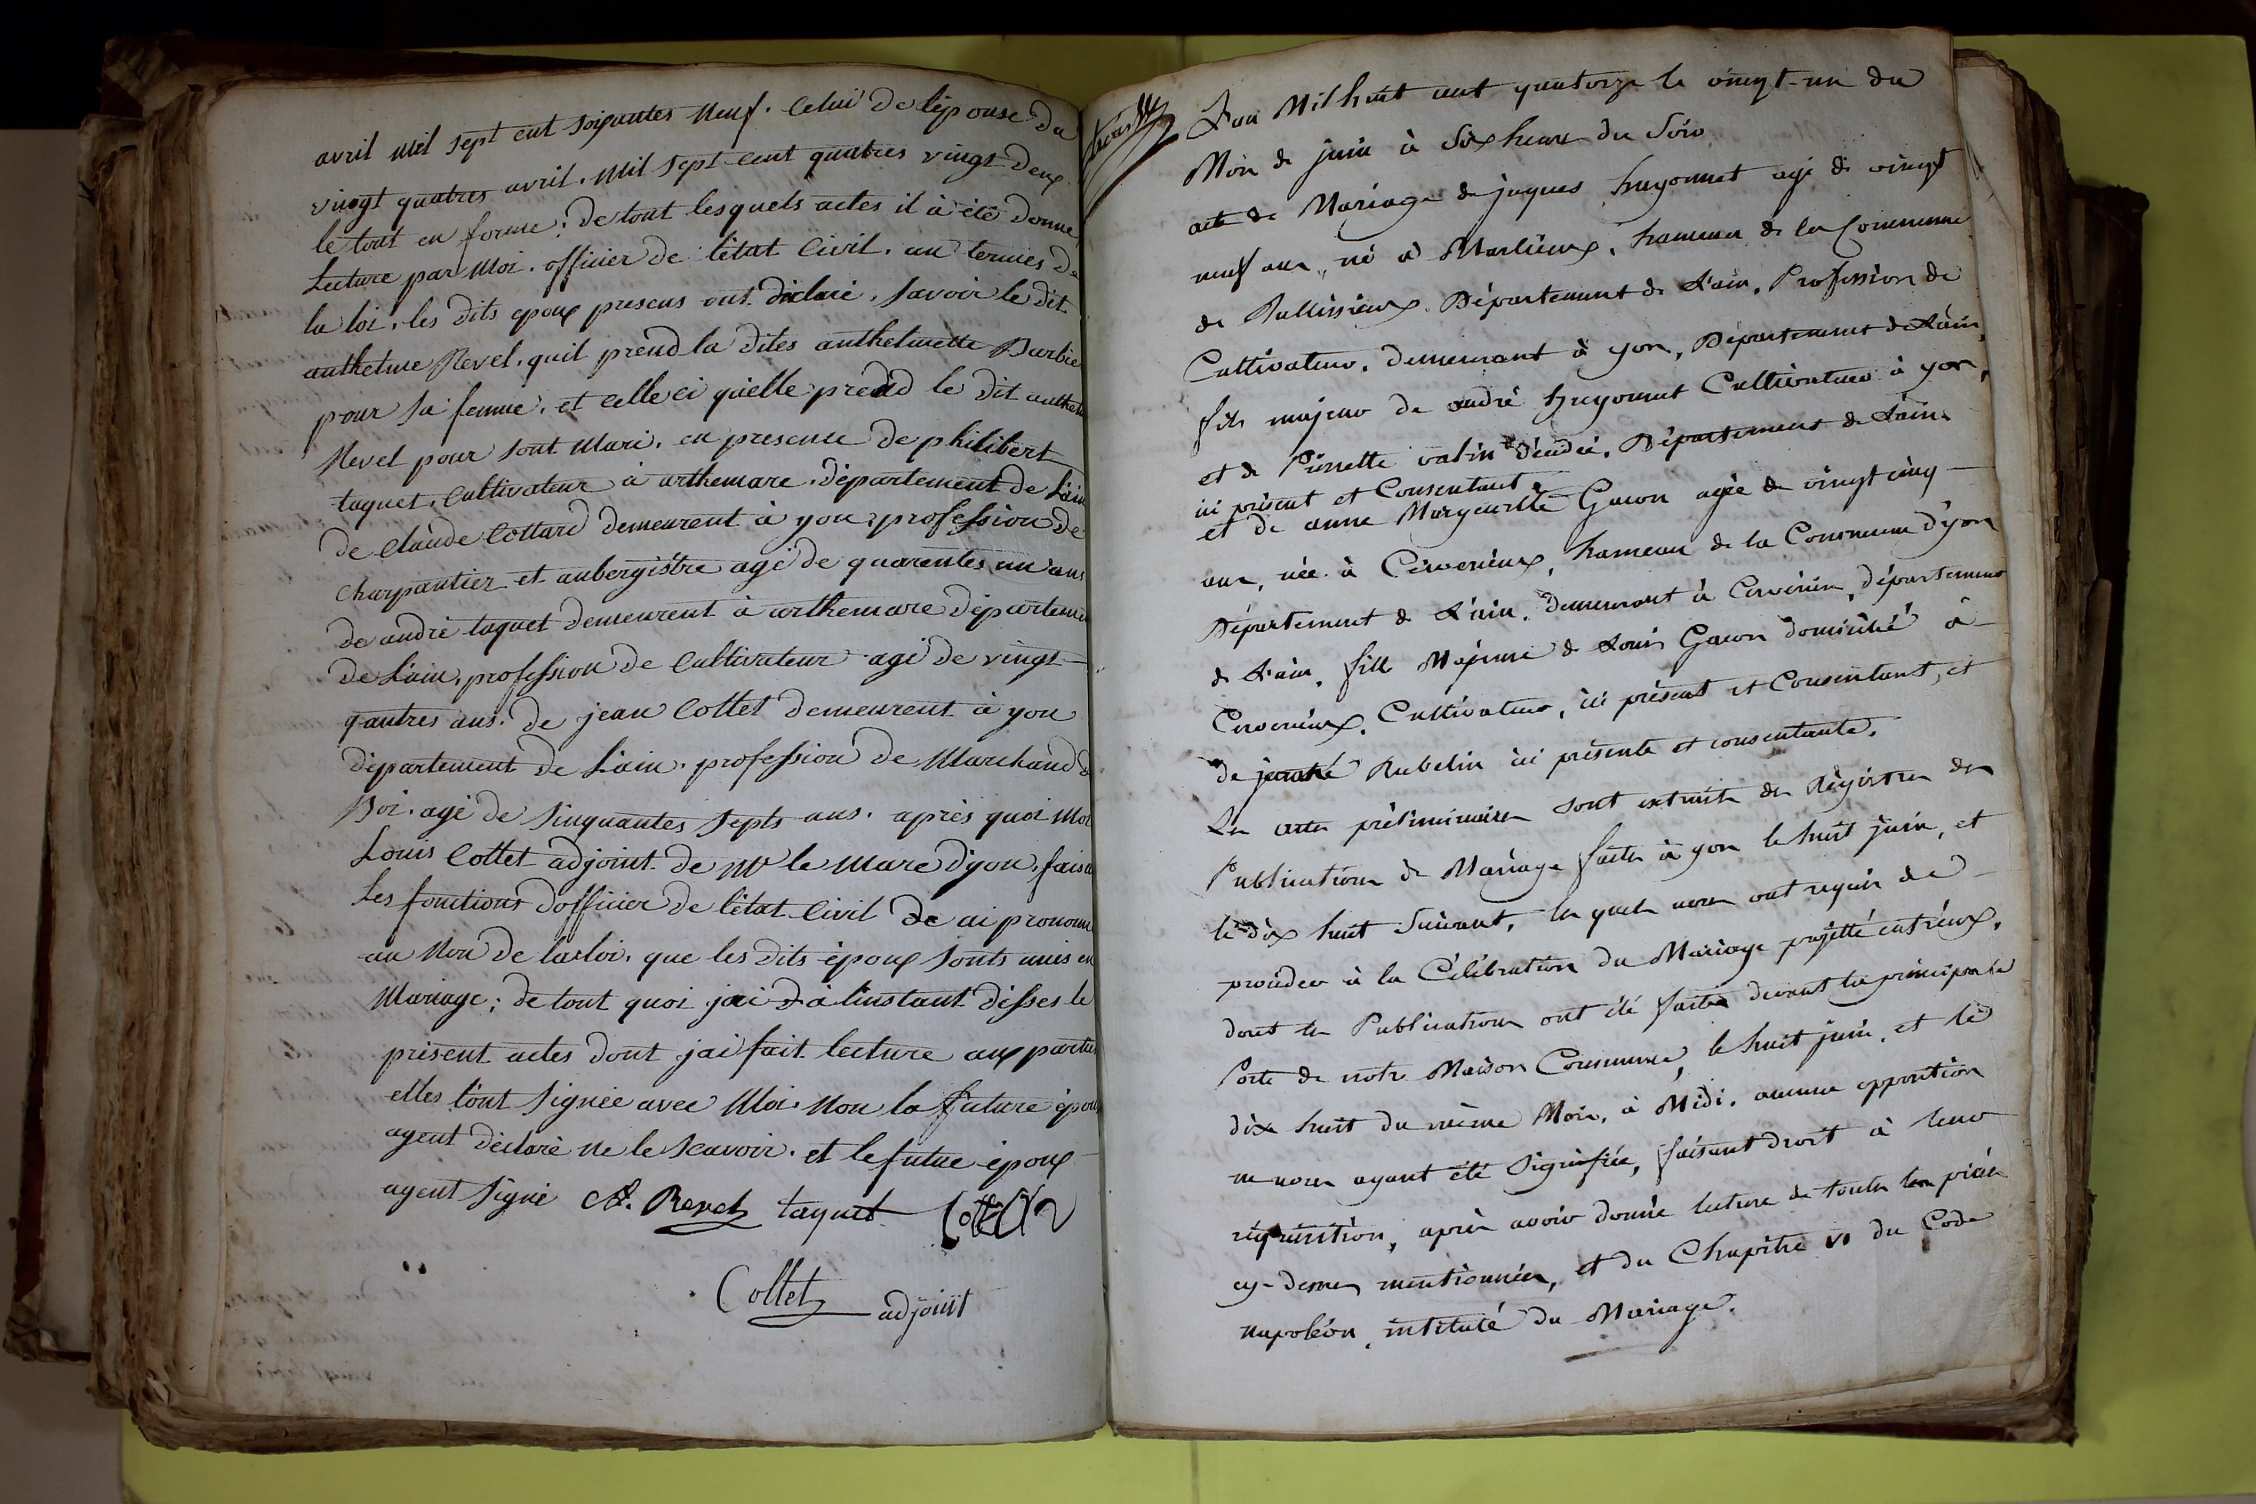 avril mil sept cent soixantes neuf. celui de l'épouse du
vingt quatres avril. mil sept cent quatres vingt deux
le tout en forme; de tout lesquels actes il à été donné
Lecture par moi. officier de l'état civil. au termes de
la loi. les dits epoux presens ont déclaré, savoir le dit
anthelme Revel. quil prend la dites anthelmette Burbier
pour sa femme. et celle ci qu'elle prend le dit anthel
Revel pour sont mari. en presence de philibert
taquet. cultivateur à arthemare. département de L'ain
de Claude Cottard demeurent à yon. profession de
charpantier et aubergistre agé de quarentes un ans
de andré taquet demeurent à arthemare départeme
de L'ain. profession de cultivateur agé de vingt
quatres ans. de jean Collet demeurent à yon
département de L'ain. profession de Marchand de
Boi. agé de sinquantes septs ans. après quoi moi
Louis Collet adjoint de Mr le Mare d'yon, faisa
Les fonctions d'officier de l'état civil de ai prononc
au Non de la loi. que les dits époux sonts unis en
Mariage; de tout quoi jai d à linstant désses le
présent actes dont jai fait lecture aux parties
elles l'ont signée avec Moi. Non la future épou
agent déclaré ne le scavoir. et le future époux
agent signé At. Revel taquet
Collet adjoint
L'an Mil huit cent quatorze le vingt-un du
Mois de juin à Six heure du Soir
acte de Mariage de jaques hugonnet agé de vingt
neuf ans, né à Marlieux, hameau de la Commune
de Rullissieux. Département de L'ain, Profession de
Cultivateur, demeurant à yon, Département de L'ain,
fils majeur de andré hugonnet Cultivateur à yon,
et de Pierrette vatin décédée, Département de L'ain
ici présent et Consentant,
et de anne Marguerite Gacon agée de vingt cinq
ans, née à Cerverieux, hameau de la Commune d'yon
Département de L'ain. demeurant à Cervérieu, département
de L'ain, fille Majeure de Louis Gacon domicilié à
Cerverieux. Cultivateur, ici présent et Consentant, et
de Rubelin ici présente et consentante.
Les actes préliminaires sont extraits des Régistres des
Publications de Mariage faites à yon le huit juin, et
le dix huit Suivant, les quels nous ont requis de
procéder à la Célébration du Mariage projetté entr'eux,
dont les Publications ont été faites devant la principale
Porte de notre Maison Commune, le huit juin, et le
dix huit du même Mois, à Midi. aucune opposition
ne nous ayant été signifiée, faisant droit à leur
réquisition, après avoir donné lecture de toutes les pièces
cy-dessus mentionnées, et du Chapitre VI du Code
napoléon, intitulé du Mariage.